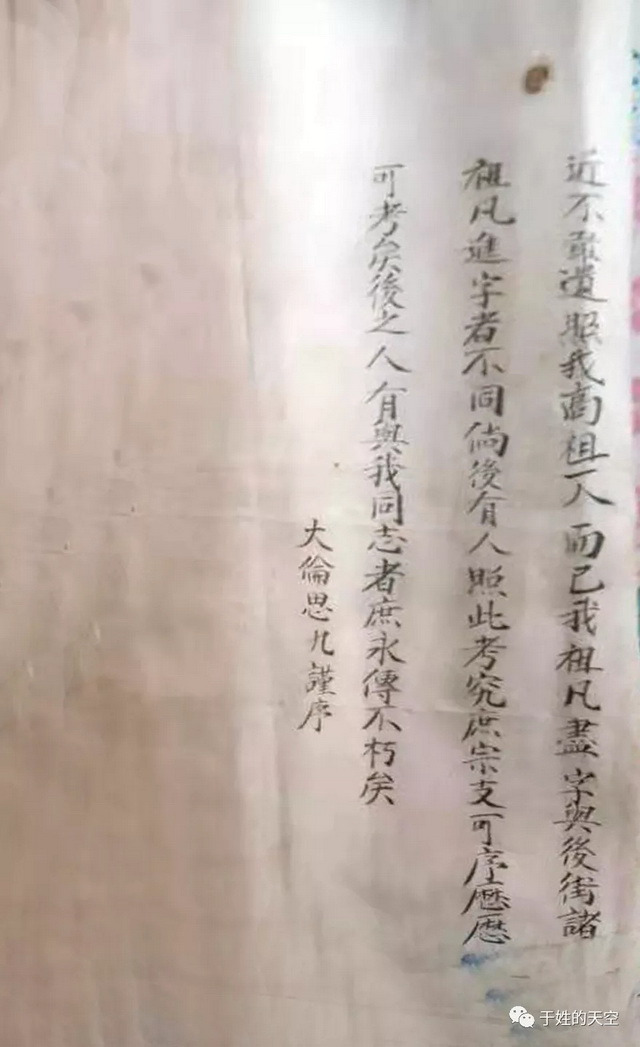 近不敢遺照我高祖一人而已我祖凡盡字與後街諸
祖凡進字者不同倘後有人照此考究庶宗支可序歷歷
可考矣後之人有與我同志者庶永傳不朽矣
大倫思九謹序
于姓的天空